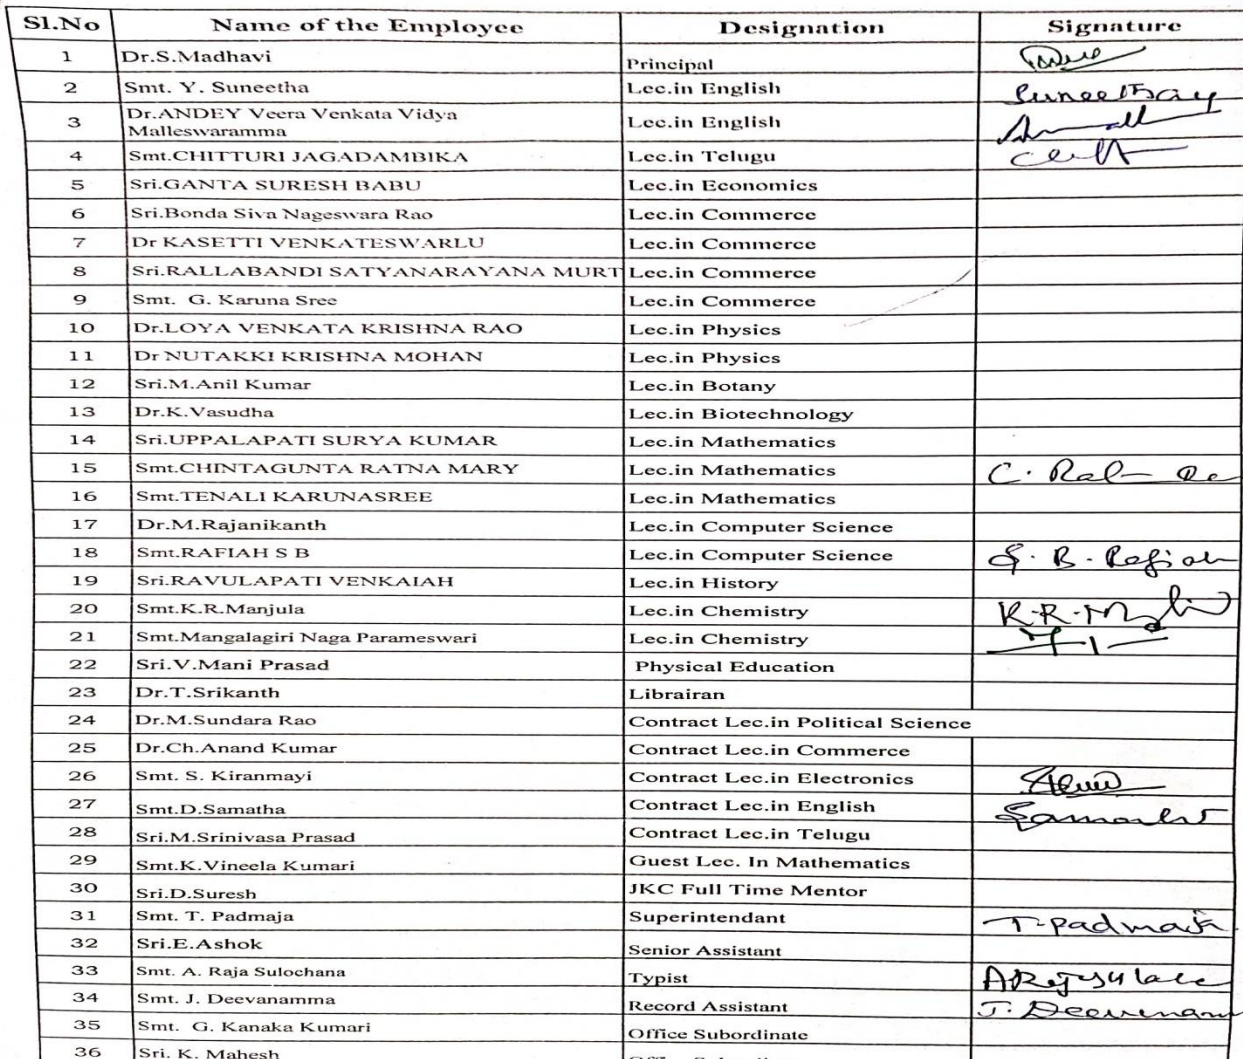 Sl.No Name of the Employee Designation Signature
1 Dr.S.Madhavi Principal
2 Smt. Y. Suneetha Lec.in English Suneethay
3 Dr.ANDEY Veera Venkata Vidya
Malleswaramma Lec.in English
4 Smt.CHITTURI JAGADAMBIKA Lec.in Telugu
5 Sri.GANTA SURESH BABU Lec.in Economics
6 Sri.Bonda Siva Nageswara Rao Lec.in Commerce
7 Dr KASETTI VENKATESWARLU Lec.in Commerce
8 Sri.RALLABANDI SATYANARAYANA MURT Lec.in Commerce
9 Smt. G. Karuna Sree Lec.in Commerce
10 Dr.LOYA VENKATA KRISHNA RAO Lec.in Physics
11 Dr NUTAKKI KRISHNA MOHAN Lec.in Physics
12 Sri.M.Anil Kumar Lec.in Botany
13 Dr.K.Vasudha Lec.in Biotechnology
14 Sri.UPPALAPATI SURYA KUMAR Lec.in Mathematics
15 Smt.CHINTAGUNTA RATNA MARY Lec.in Mathematics C.
16 Smt.TENALI KARUNASREE Lec.in Mathematics
17 Dr.M.Rajanikanth Lec.in Computer Science
18 Smt.RAFIAH S B Lec.in Computer Science S. B. Rafiah
19 Sri.RAVULAPATI VENKAIAH Lec.in History
20 Smt.K.R.Manjula Lec.in Chemistry K.R.
21 Smt.Mangalagiri Naga Parameswari Lec.in Chemistry
22 Sri.V.Mani Prasad Physical Education
23 Dr.T.Srikanth Librairan
24 Dr.M.Sundara Rao Contract Lec.in Political Science
25 Dr.Ch.Anand Kumar Contract Lec.in Commerce
26 Smt. S. Kiranmayi Contract Lec.in Electronics
27 Smt.D.Samatha Contract Lec.in English
28 Sri.M.Srinivasa Prasad Contract Lec.in Telugu
29 Smt.K.Vineela Kumari Guest Lec. In Mathematics
30 Sri.D.Suresh JKC Full Time Mentor
31 Smt. T. Padmaja Superintendant T.Padmaja
32 Sri.E.Ashok Senior Assistant
33 Smt. A. Raja Sulochana Typist
34 Smt. J. Deevanamma Record Assistant J. Deevenam
35 Smt. G. Kanaka Kumari Office Subordinate
36 Sri. K. Mahesh